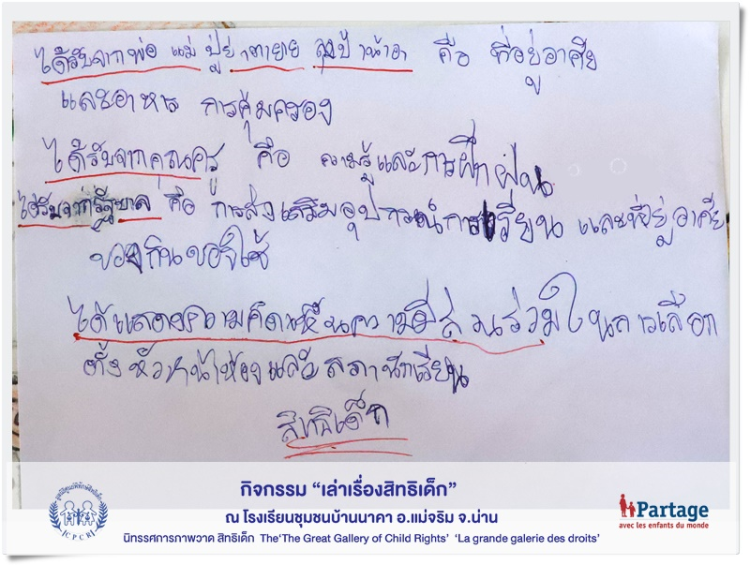 ได้รับจากพ่อ แม่ ปู่ย่าตายาย ลุงป้าน้าอา คือ ที่อยู่อาศัย
และอาหาร การคุ้มครอง
ได้รับจากคุณครู คือ ความรู้และการฝึกฝน
ได้รับจากรัฐบาล คือ การส่งเสริมอุปกรณ์การเรียน และที่อยู่อาศัย
ของกินของใช้
ได้แสดงความคิดเห็นความมีส่วนร่วมในการเลือก
ตั้งหัวหน้าห้องและสภานักเรียน
สิทธิเด็ก
กิจกรรม “เล่าเรื่องสิทธิเด็ก”
ณ โรงเรียนชุมชนบ้านนาคา อ.แม่จริม จ.น่าน
นิทรรศการภาพวาด สิทธิเด็ก The‘The Great Gallery of Child Rights’ ‘La grande galerie des droits’
CPCR
Partage
avec les enfants du monde